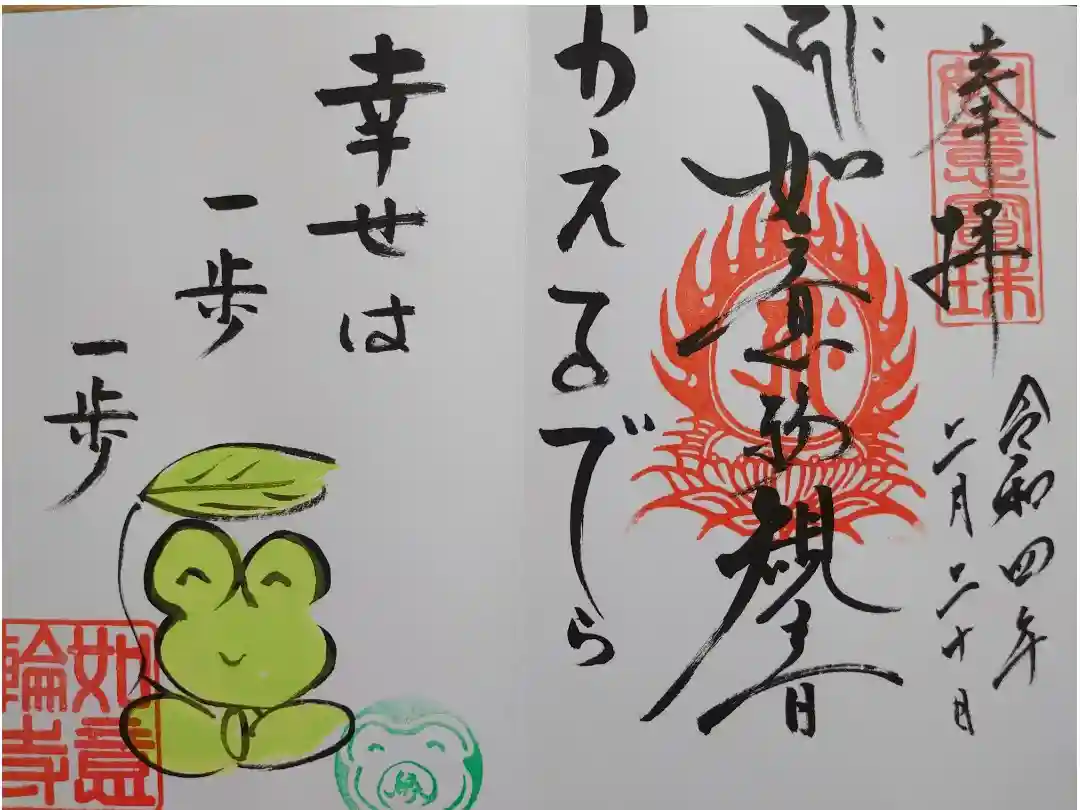 奉拝
如意寶珠
令和四年
二月二十日
如意輪観音
かえるでら
幸せは
一歩
一歩
如意輪寺